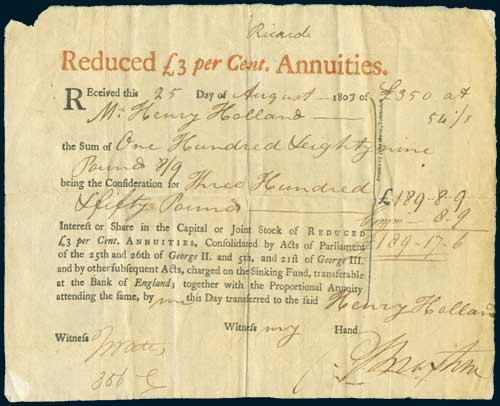 Ricardo
Reduced £3 per Cent. Annuities.
Received this 25 Day of August 1803 of
Mr Henry Holland
£350 at
54 1/8
the Sum of One Hundred & eighty nine
Pound 8/9
being the Consideration for Three Hundred
& fifty Pounds
£ 189-8-9
Comm - 8.9
189-17-6
Interest or Share in the Capital or Joint Stock of REDUCED
£3 per Cent. ANNUITIES, Consolidated by Acts of Parliament
of the 25th and 26th of George II. and 5th, and 21st of George III.
and by other subsequent Acts, charged on the Sinking Fund, transferable
at the Bank of England; together with the Proportional Annuity
attending the same, by me this Day transferred to the said Henry Holland
Witness my Hand
Witness
356